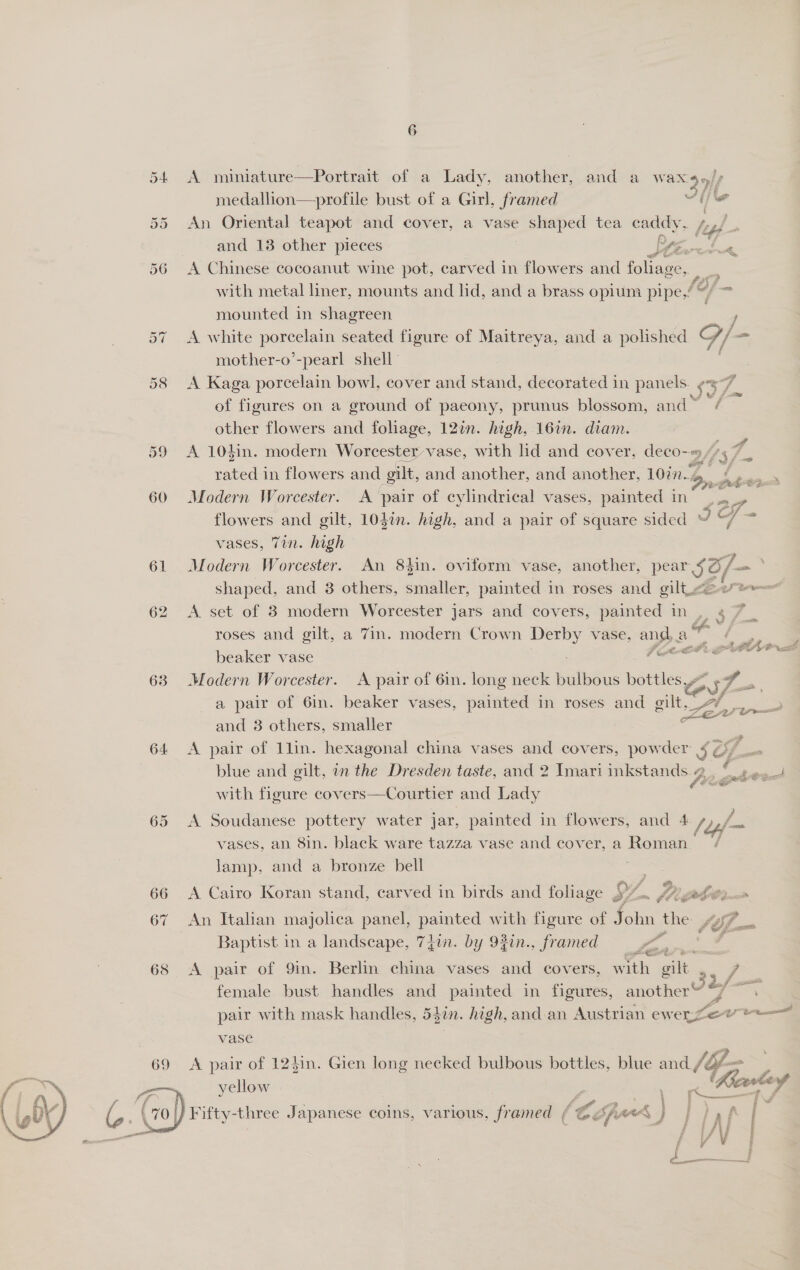 6
54 A miniature—Portrait of a Lady, another, and a wax
medallion—profile bust of a Girl, framed
55 An Oriental teapot and cover, a vase shaped tea caddy,
and 13 other pieces
56 A Chinese cocoanut wine pot, carved in flowers and foliage,
with metal liner, mounts and lid, and a brass opium pipe,
mounted in shagreen
57 A white porcelain seated figure of Maitreya, and a polished
mother-o'-pearl shell
58 A Kaga porcelain bowl, cover and stand, decorated in panels
of figures on a ground of paeony, prunus blossom, and
other flowers and foliage, 12in. high, 16in. diam.
59 A 10½in. modern Worcester vase, with lid and cover, deco-
rated in flowers and gilt, and another, and another, 10in.
60 Modern Worcester. A pair of cylindrical vases, painted in
flowers and gilt, 10½in. high, and a pair of square sided
vases, 7in. high
61 Modern Worcester. An 8½in. oviform vase, another, pear
shaped, and 3 others, smaller, painted in roses and gilt
62 A set of 3 modern Worcester jars and covers, painted in
roses and gilt, a 7in. modern Crown Derby vase, and a
beaker vase
63 Modern Worcester. A pair of 6in. long neck bulbous bottles,
a pair of 6in. beaker vases, painted in roses and gilt,
and 3 others, smaller
64 A pair of 11in. hexagonal china vases and covers, powder
blue and gilt, in the Dresden taste, and 2 Imari inkstands
with figure covers—Courtier and Lady
65 A Soudanese pottery water jar, painted in flowers, and 4
vases, an 8in. black ware tazza vase and cover, a Roman
lamp, and a bronze bell
66 A Cairo Koran stand, carved in birds and foliage
67 An Italian majolica panel, painted with figure of John the
Baptist in a landscape, 7¼in. by 9¾in., framed
68 A pair of 9in. Berlin china vases and covers, with gilt
female bust handles and painted in figures, another
pair with mask handles, 5½in. high, and an Austrian ewer
vase
69 A pair of 12½in. Gien long necked bulbous bottles, blue and
yellow
70 Fifty-three Japanese coins, various, framed